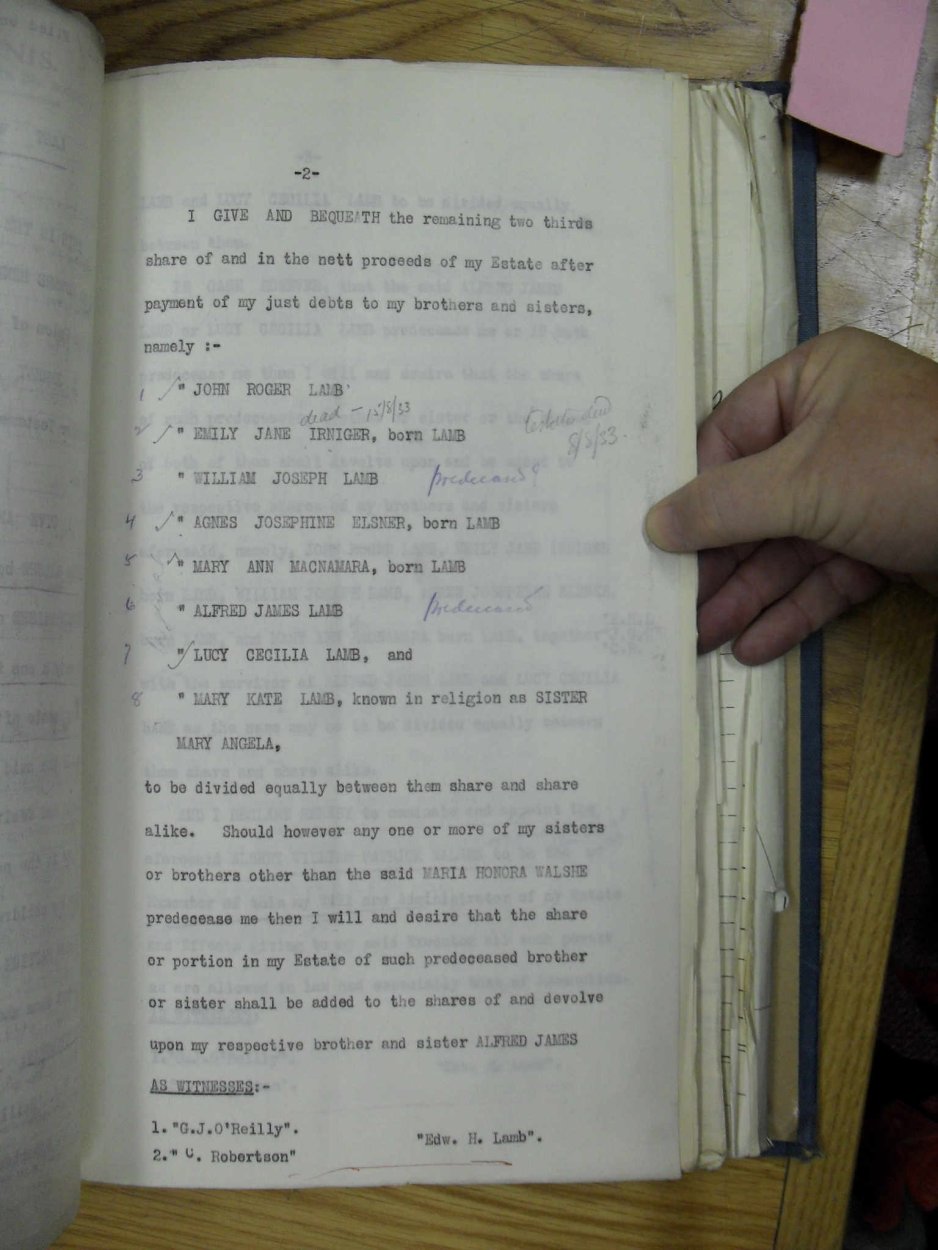 -2-
I GIVE AND BEQUEATH the remaining two thirds
share of and in the nett proceeds of my Estate after
payment of my just debts to my brothers and sisters,
namely :-
1 " JOHN ROGER LAMB
dead - 15/8/33
2 " EMILY JANE IRNIGER, born LAMB
8/8/33.
3 " WILLIAM JOSEPH LAMB
4 " AGNES JOSEPHINE ELSNER, born LAMB
5 " MARY ANN MACNAMARA, born LAMB
6 " ALFRED JAMES LAMB
7 " LUCY CECILIA LAMB, and
8 " MARY KATE LAMB, known in religion as SISTER
MARY ANGELA,
to be divided equally between them share and share
alike. Should however any one or more of my sisters
or brothers other than the said MARIA HONORA WALSHE
predecease me then I will and desire that the share
or portion in my Estate of such predeceased brother
or sister shall be added to the shares of and devolve
upon my respective brother and sister ALFRED JAMES
AS WITNESSES:-
1."G.J.O'Reilly".
"Edw. H. Lamb".
2." C. Robertson"